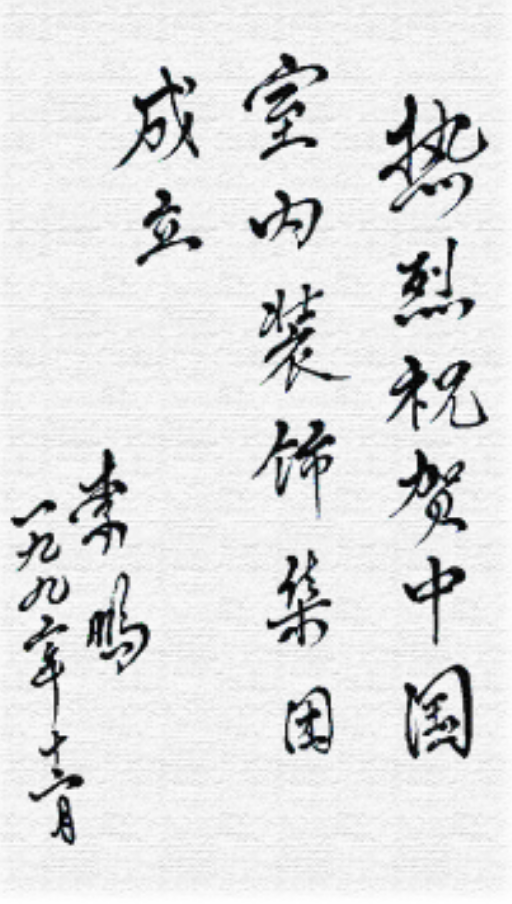 热烈祝贺中国
室内装饰集团
成立
李鹏
一九九二年十二月